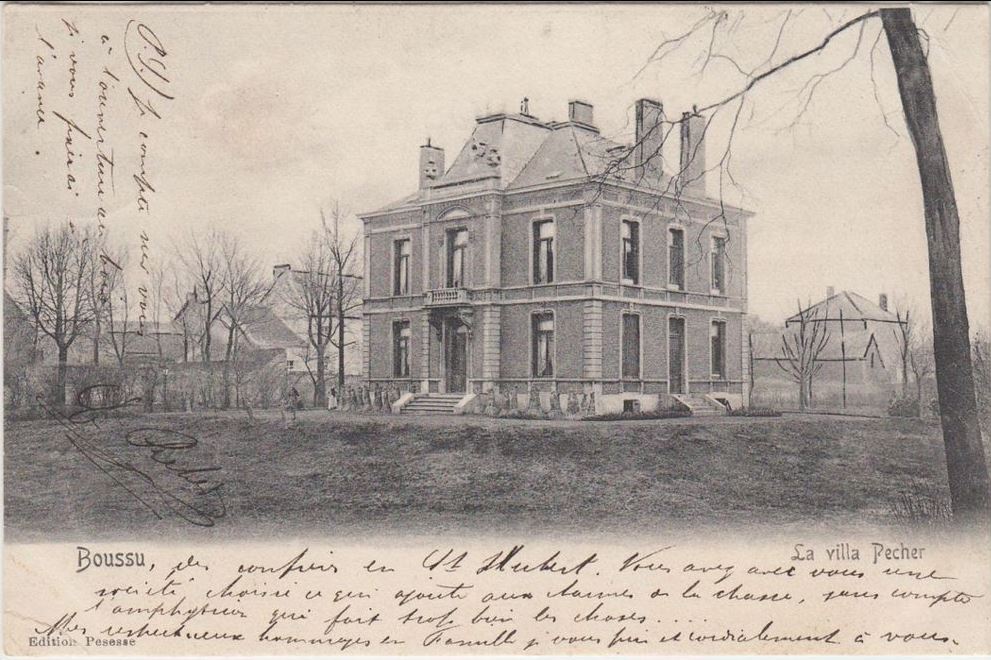 P.S. Je compte sur vous
à l'ouverture du bois
si vous plairai à
l'avance.
Boussu, des confrères en St Hubert. Vous avez avec vous une
La villa Pecher
société choisie ce qui ajoute aux charmes de la chasse, sans compter
l'amphytrion qui fait trop bien les choses....
Mes respectueux hommages en Famille je vous prie et cordialement à vous.
Edition Pesesse